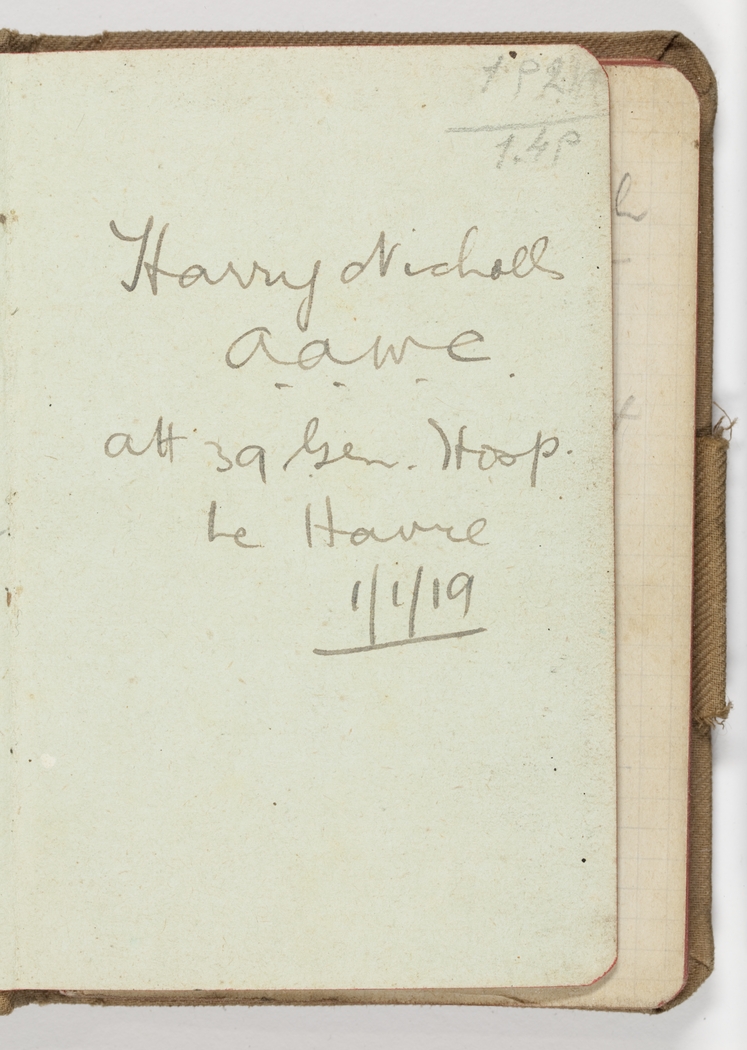 1.4P
Harry Nicholls
a.a.w.c.
att 39 Gen. Hosp.
Le Havre
1/1/19